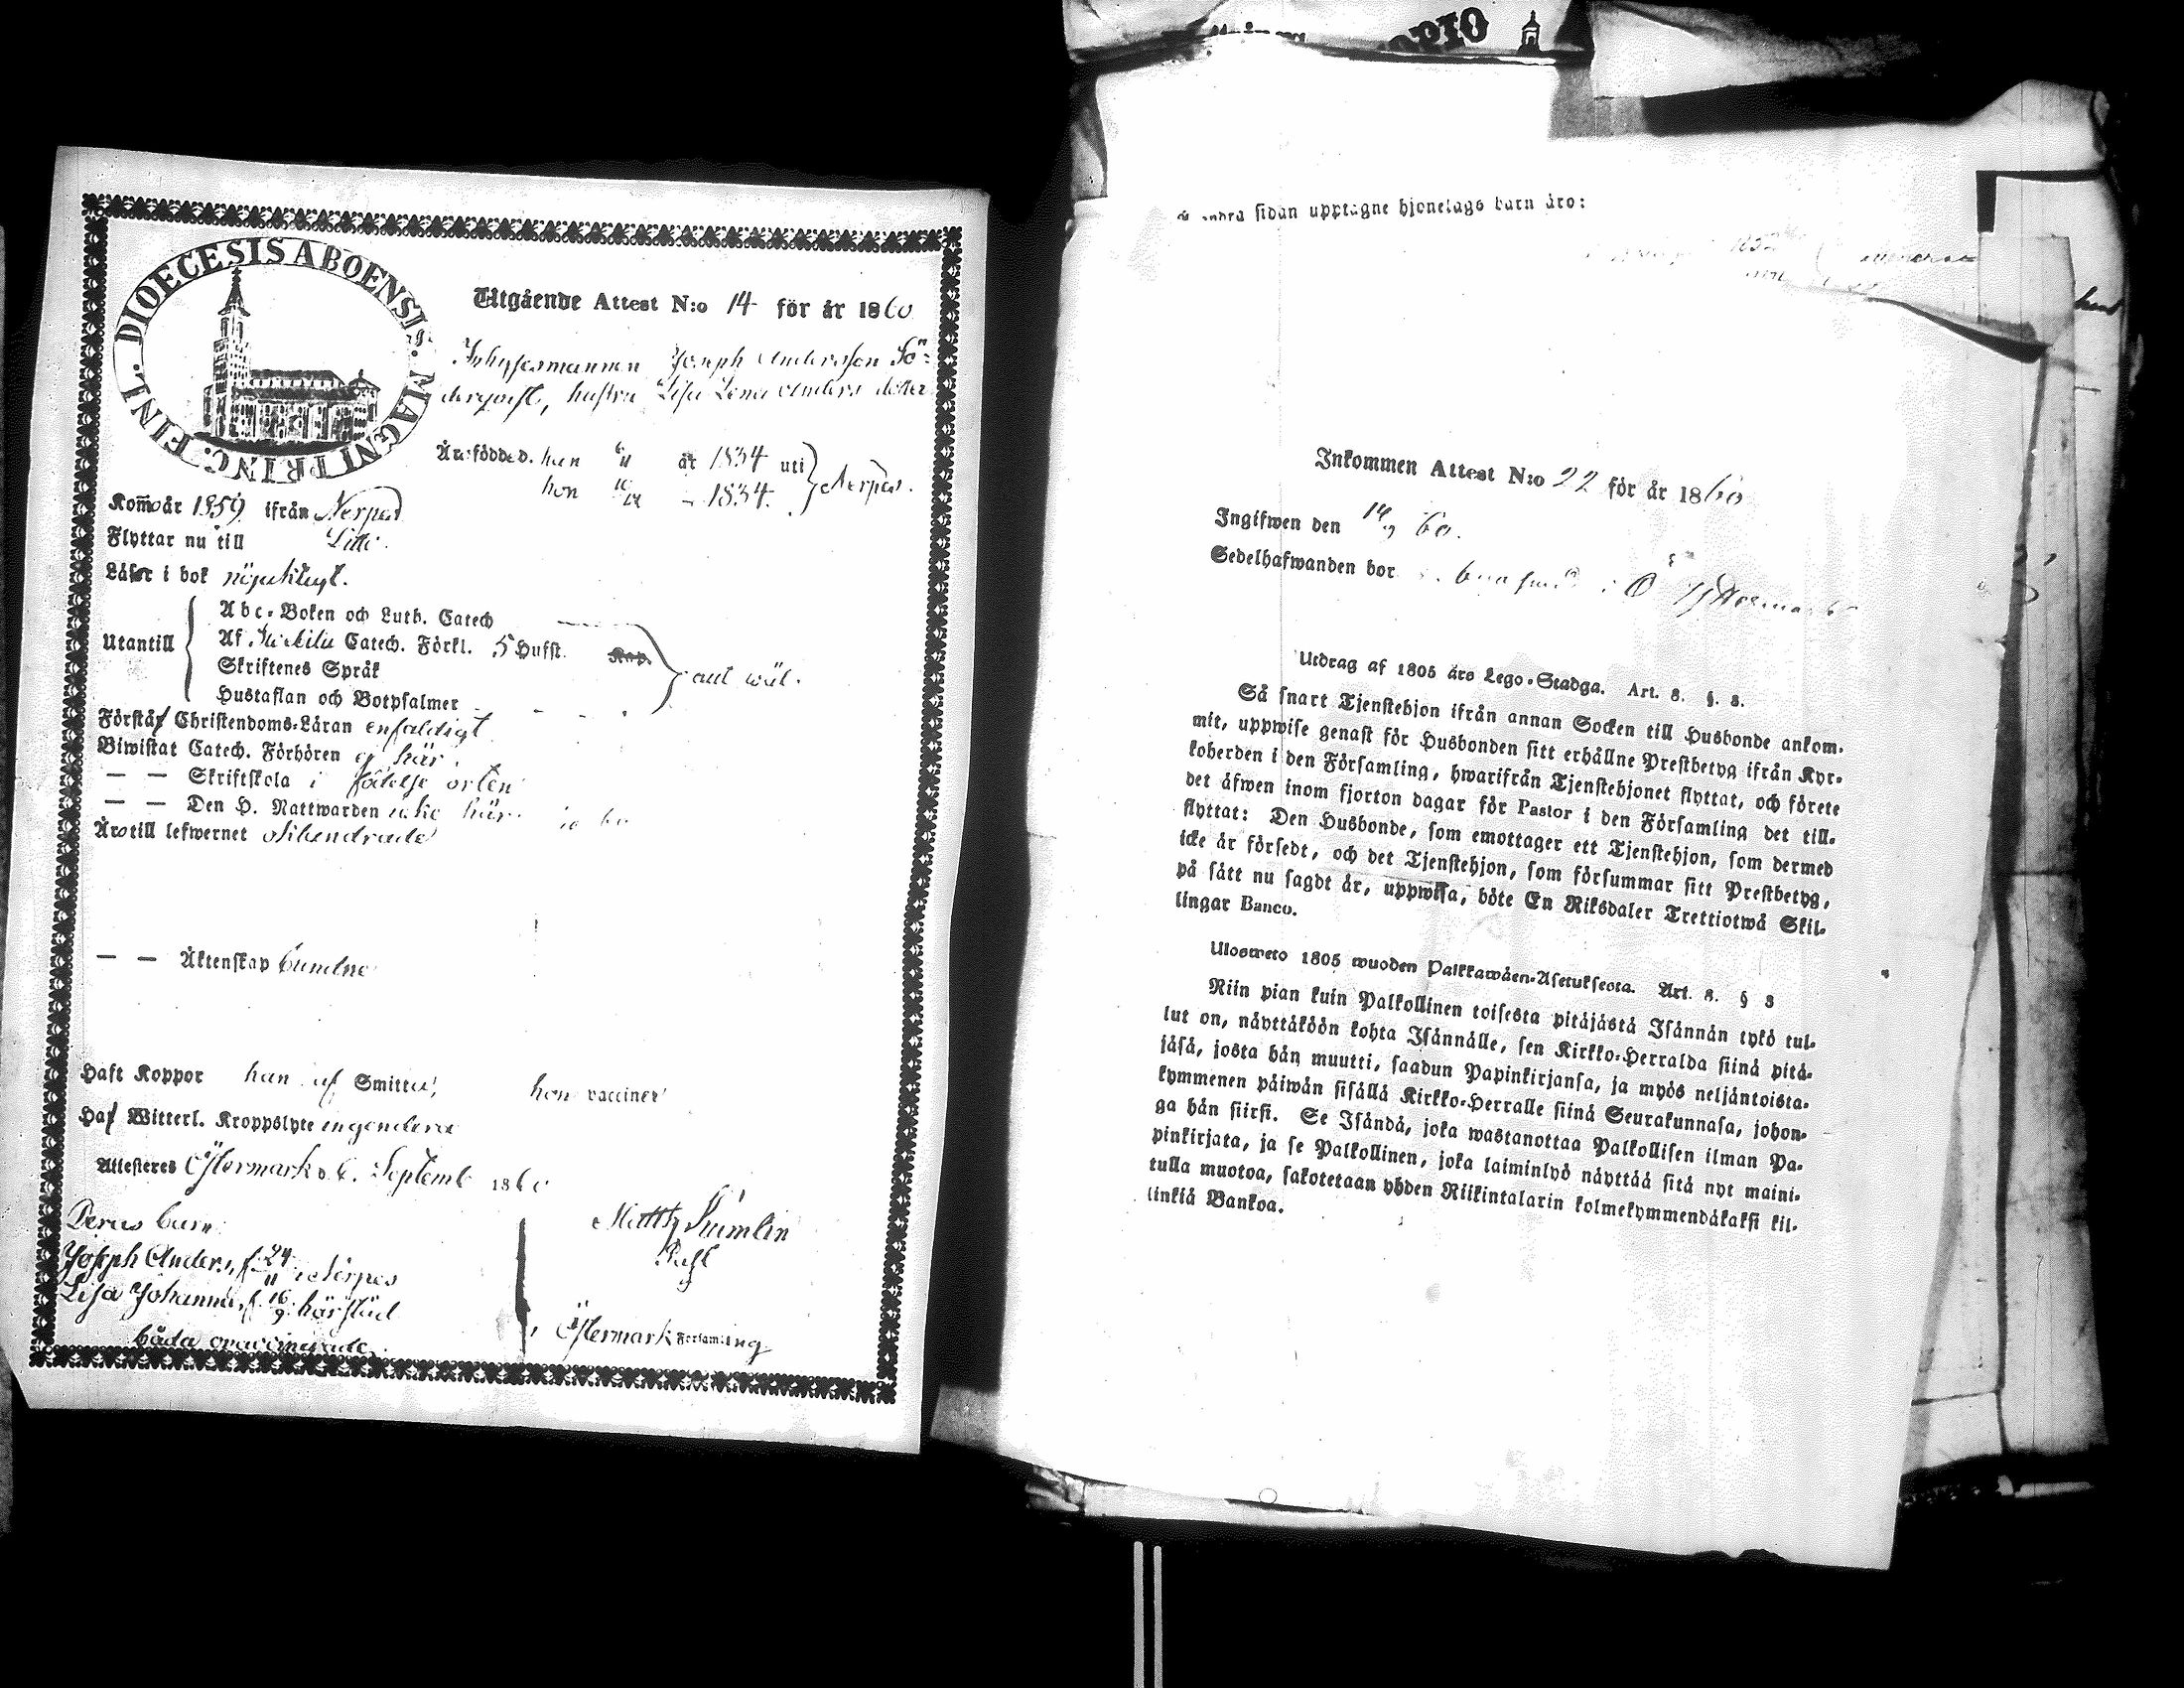 DIOECESIS ABOENSIS. MAGNI PRINC. FINL.
Utgående Attest N:o 14 för år 1860
Inhysesmannen Joseph Andersson Sö-
derqvist, hustru Lisa Lena Anders dotter
Äro födde d. han 6/11 år 1834 uti
hon 10/12 – 1834. Nerpes.
Kommo år 1859 ifrån Nerpes
Flyttar nu till Ditto.
Läser i bok nöjaktigt.
Utantill
Abc-Boken och Luth. Catech
Af Catech. Förkl. 5 Hufst. Kap.
Skriftenes Språk
Hustaflan och Botpsalmer
wäl.
Förstår Christendoms-Läran enfaldigt
Biwistat Catech. Förhören ej här.
— — Skriftskola i födelse orten
— — Den H. Nattwarden icke här.
Äro till lefwernet oklandrade
— — Äktenskap bundne
Haft Koppor han af Smitta, hon vaccinen
Haf Witterl. Kroppslyte ingendera
Attesteras Östermark d. 6. Septemb 1860
Deras barn
Joseph Anders, f. 24/11 i Nerpes
Lisa Johanna, f. 16/9 härstäd
båda ovaccinerade.
Matth
Östermark Församling
sidan upptagne hjonelags barn äro:
Inkommen Attest N:o 22 för år 1860
Ingifwen den 14/9 60.
Sedelhafwanden bor
Utdrag af 1805 års Lego-Stadga. Art. 8. §. 3.
Så snart Tjenstehjon ifrån annan Socken till Husbonde ankom-
mit, uppwise genast för Husbonden sitt erhållne Prestbetyg ifrån Kyr-
koherden i den Församling, hwarifrån Tjenstehjonet flyttat, och förete
det äfwen inom fjorton dagar för Pastor i den Församling det till-
flyttat: Den Husbonde, som emottager ett Tjenstehjon, som dermed
icke är försedt, och det Tjenstehjon, som försummar sitt Prestbetyg,
på sätt nu sagdt är, uppwisa, böte En Riksdaler Trettiotwå Skil-
lingar Banco.
Ulosweto 1805 wuoden Palkkawäen-Asetuksesta. Art. 8. § 3
Niin pian kuin Palkollinen toisesta pitäjästä Isännän tykö tul-
lut on, näyttäköön kohta Isännälle, sen Kirkko-Herralda siinä pitä-
jäsä, josta hän muutti, saadun Papinkirjansa, ja myös neljäntoista-
kymmenen päiwän sisällä Kirkko-Herralle siinä Seurakunnasa, johon-
ga hän siirsi. Se Isändä, joka wastanottaa Palkollisen ilman Pa-
pinkirjata, ja se Palkollinen, joka laiminlyö näyttää sitä nyt maini-
tulla muotoa, sakotetaan yhden Riikintalarin kolmekymmendäkaksi kil-
linkiä Bankoa.